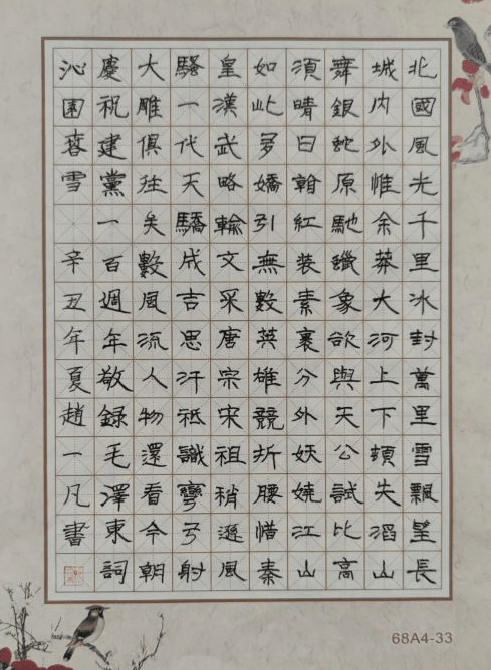 北國風光千里冰封萬里雪飄望長
城内外惟余莽大河上下頓失滔山
舞銀蛇原馳蠟象欲與天公試比高
須晴日看紅装素裹分外妖嬈江山
如此多嬌引無數英雄競折腰惜秦
皇漢武略輸文采唐宗宋祖稍遜風
騷一代天驕成吉思汗祗識彎弓射
大雕俱往矣數風流人物還看今朝
慶祝建黨一百週年敬録毛澤東詞
沁園春雪 辛丑年夏趙一凡書
68A4-33